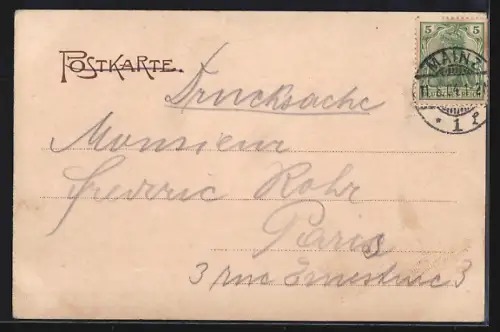 POSTKARTE.
5 5
MAINZ
1
Drucksache
Monsieur
Frederic Rohr
Paris
3 rue Ernestine 3